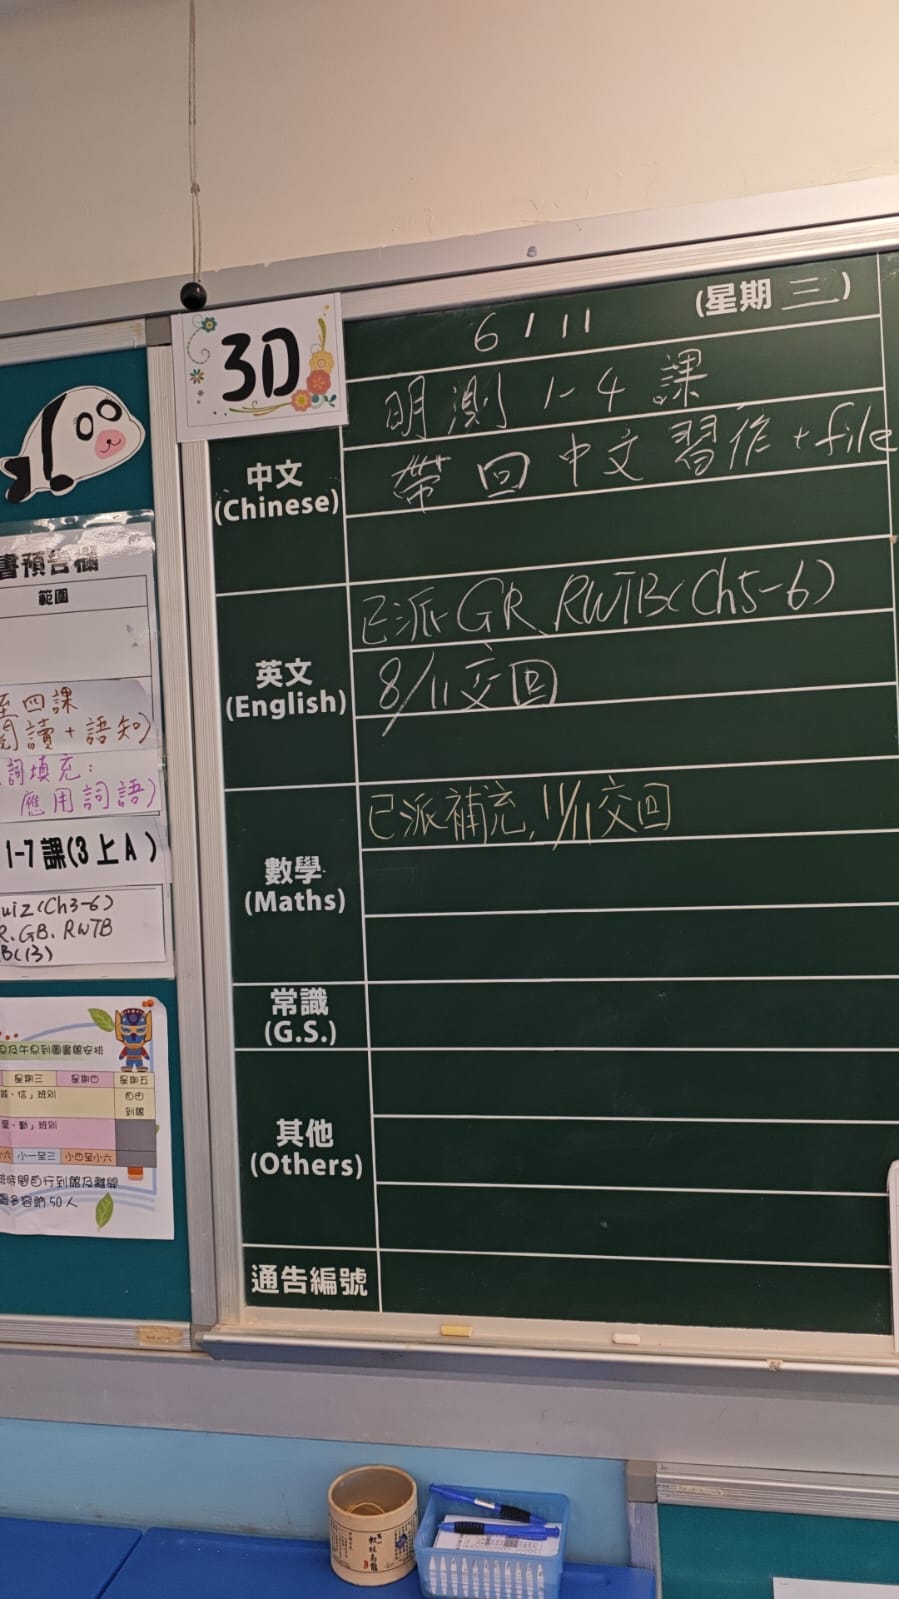 3D
6/11
(星期三)
明測1-4課
中文
(Chinese)
帶回中文習作+file
英文
(English)
已派GR RWTB(Ch5-6)
8/11交回
數學
(Maths)
已派補充, 11/11交回
常識
(G.S.)
其他
(Others)
通告編號
書預告欄
範圍
至四課
閱讀+語知)
詞填充:
應用詞語)
1-7課(3上A)
uiz(Ch3-6)
R. GB. RWTB
B(13)
午息到圖書館安排
星期三 星期四 星期五
、信」班別 自由
到館
、勤」班別
小一至三 小四至小六
時間自行到館及離開
多容納50人